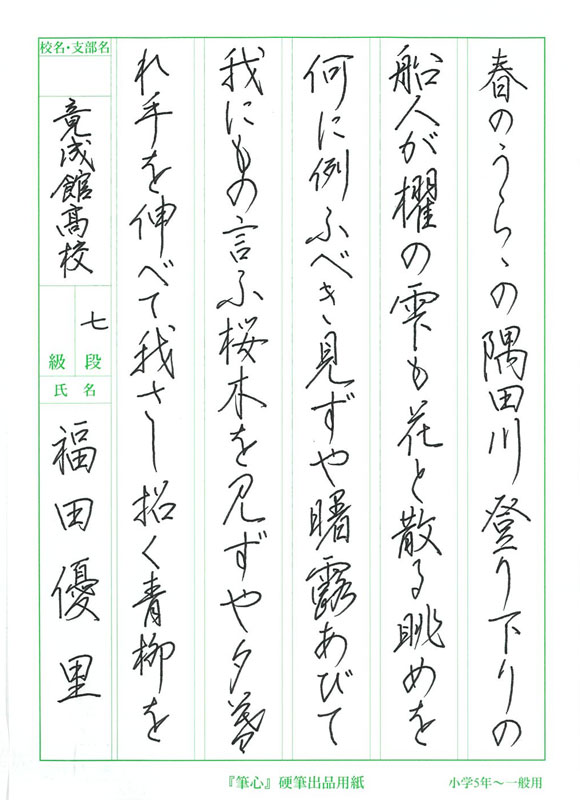 春のうらゝの隅田川登り下りの
船人が櫂の雫も花と散る眺めを
何に例ふべき見ずや曙露あびて
我にもの言ふ桜木を見ずや夕暮
れ手を伸べて我さし招く青柳を
校名・支部名
竟成館高校
七
段
級
氏名
福田優里
『筆心』硬筆出品用紙
小学5年〜一般用